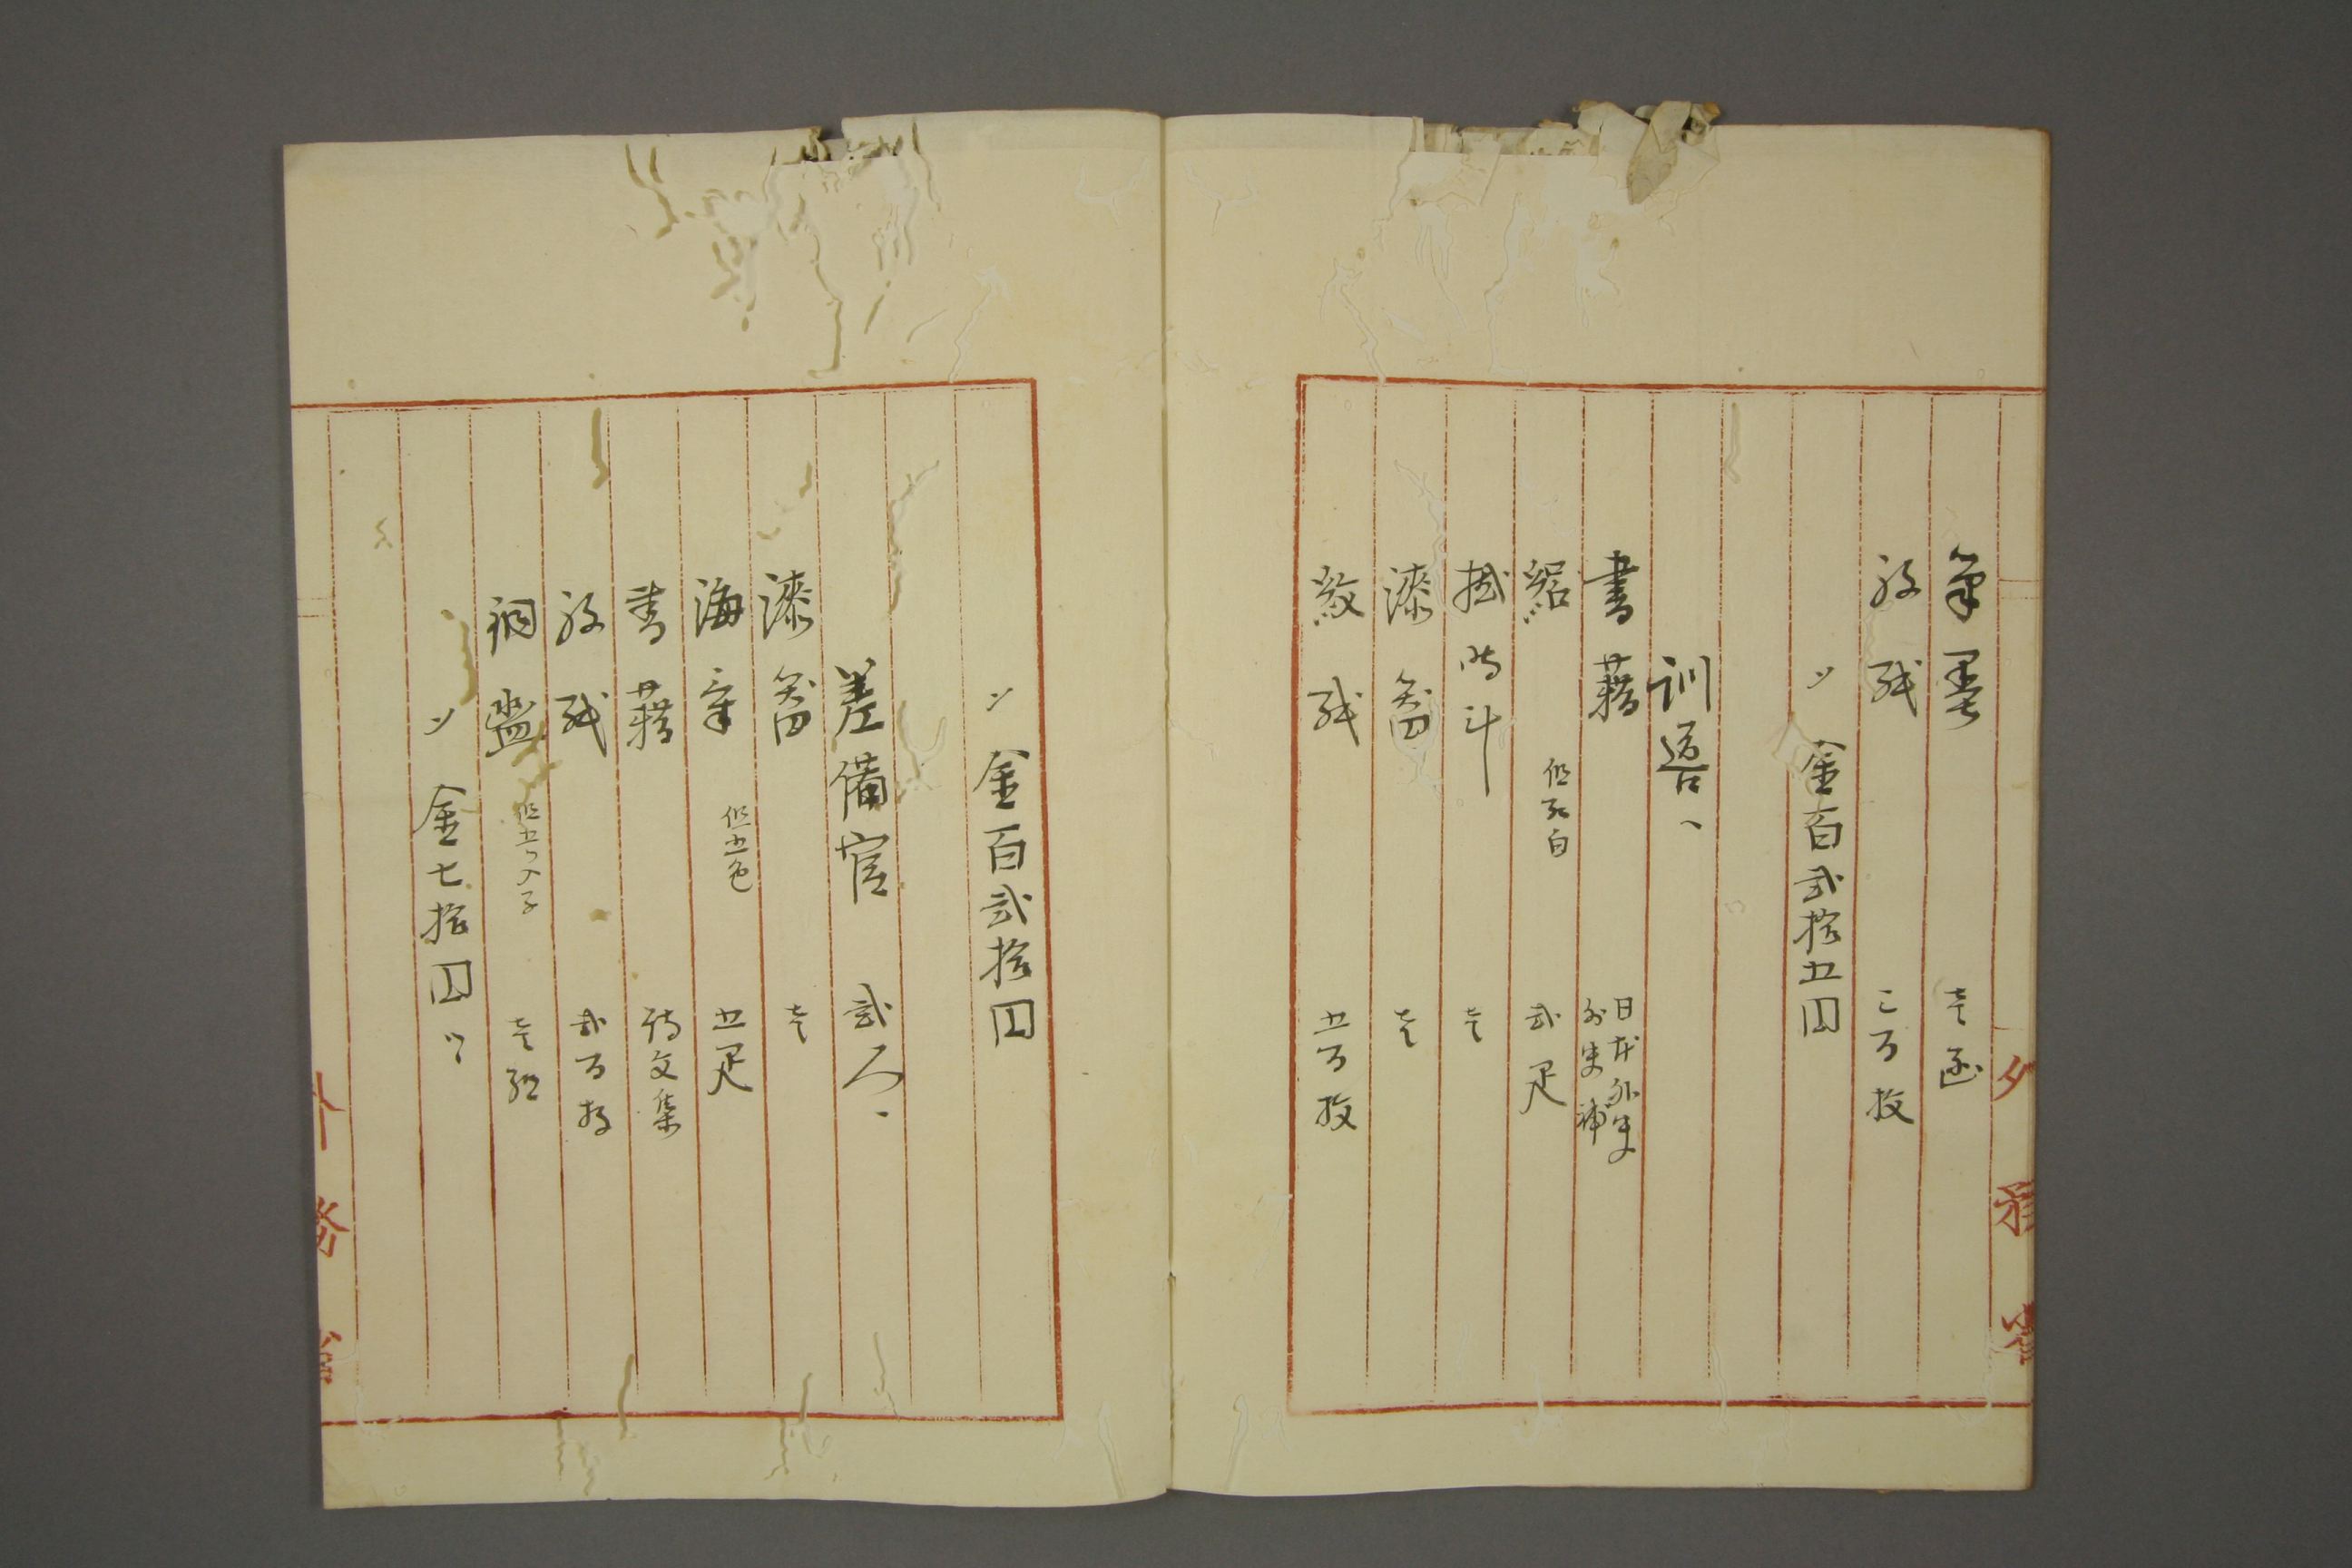 筆墨 壱函
紋紙 三百枚
〆 金百弐拾五円
訓導、
書藉 日本外史 外史補
絽 但死白 弐疋
掛時斗 壱
漆器 壱
紋紙 五百枚
〆 金百弐拾円
差備官 弐人、
漆器 壱
海氣 但五色 五疋
書藉 詩文集
紋紙 弐百枚
銅盥 但五ツ入子 壱組
〆 金七拾円
外務省